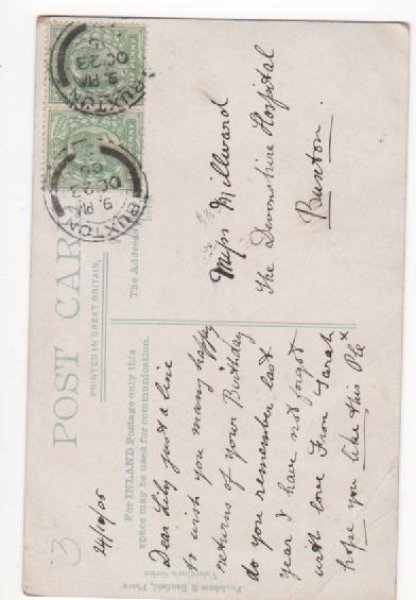 POST CARD
PRINTED IN GREAT BRITAIN.
For INLAND Postage only this
space may be used for communication.
The Address
24/10/05
Dear Lily just a line
to wish you many happy
returns of your Birthday
do you remember last
year I have not forgot
with love From Sarah
hope you like this Pc x
Miss Millward
The Devonshire Hospital
Buxton.
BUXTON
9. PM
OC 23
05
BUXTON
9. PM
OC 23
Valentine's Series
3